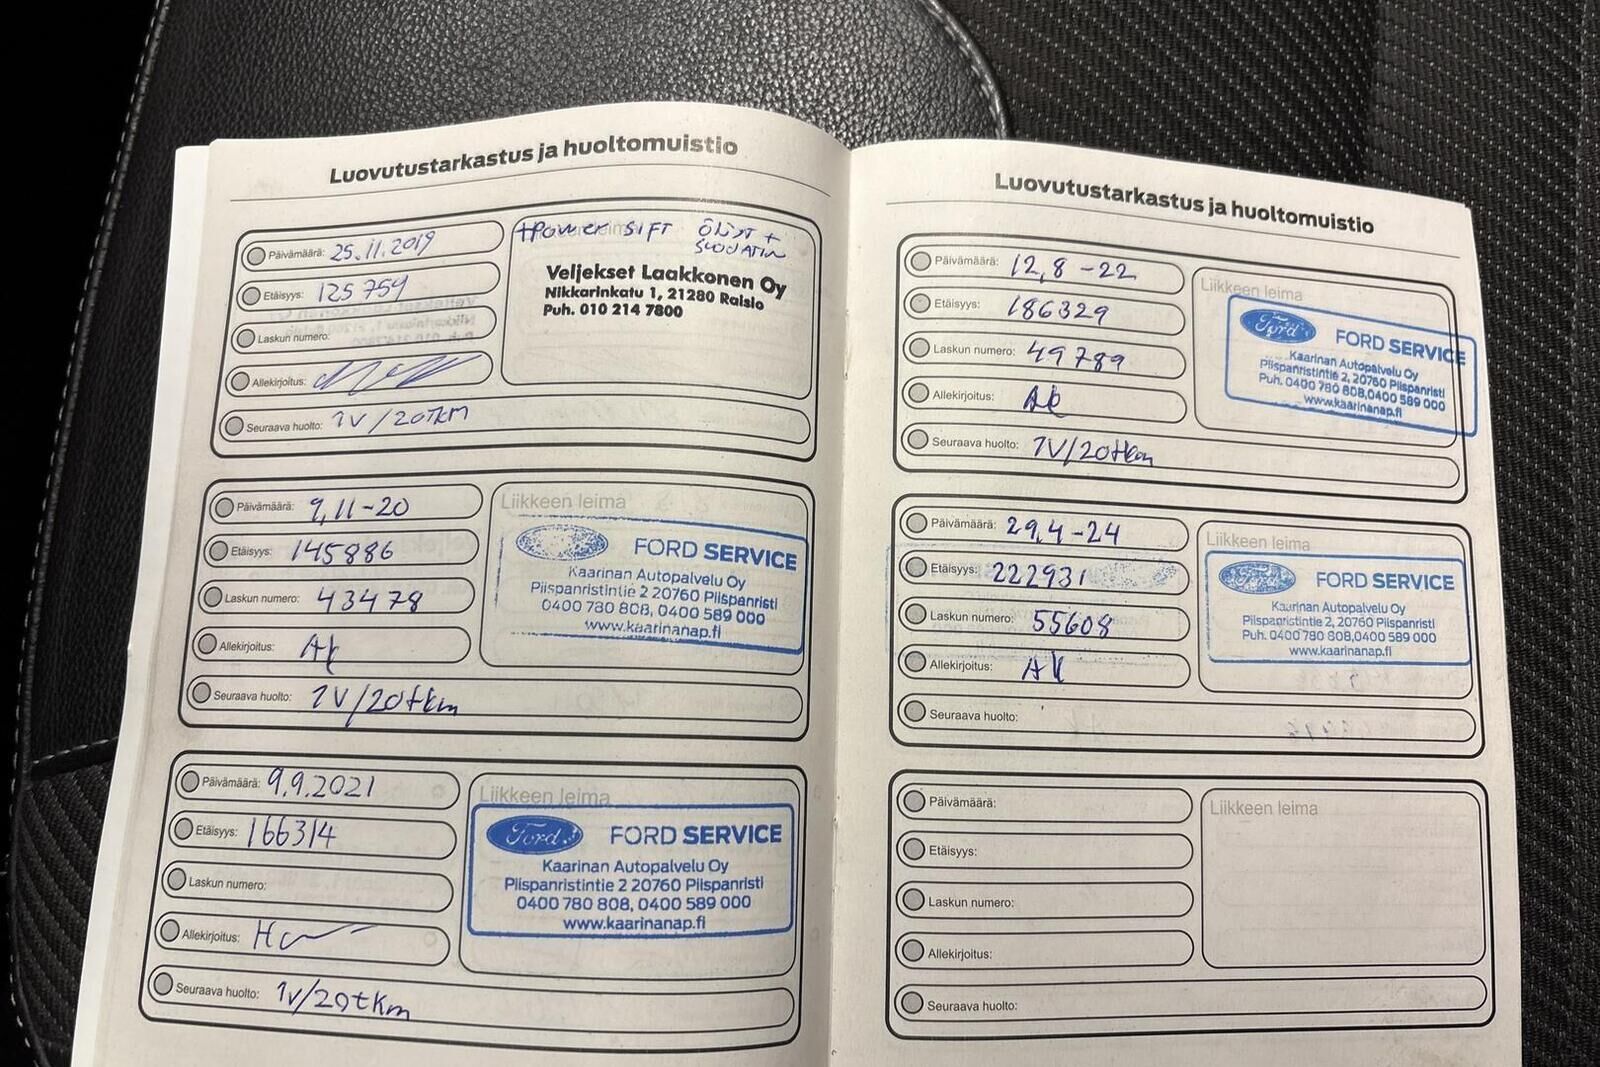 Luovutustarkastus ja huoltomuistio
Päivämäärä: 25.11.2019
Etäisyys: 125759
Laskun numero:
Allekirjoitus:
Seuraava huolto: 1V/20TKM
+Power SIFT ÖLJYT +
SUODATIN
Veljekset Laakkonen Oy
Nikkarinkatu 1, 21280 Raisio
Puh. 010 214 7800
Päivämäärä: 9,11-20
Etäisyys: 145886
Laskun numero: 43478
Allekirjoitus: AK
Seuraava huolto: 1V/20tkm
Liikkeen leima
FORD SERVICE
Kaarinan Autopalvelu Oy
Piispanristintie 2 20760 Piispanristi
0400 780 808, 0400 589 000
www.kaarinanap.fi
Päivämäärä: 9.9.2021
Etäisyys: 166314
Laskun numero:
Allekirjoitus:
Seuraava huolto: 1v/20tkm
Liikkeen leima
Ford
FORD SERVICE
Kaarinan Autopalvelu Oy
Piispanristintie 2 20760 Piispanristi
0400 780 808, 0400 589 000
www.kaarinanap.fi
Luovutustarkastus ja huoltomuistio
Päivämäärä: 12,8-22
Etäisyys: 186329
Laskun numero: 49789
Allekirjoitus: AK
Seuraava huolto: 1V/20tkm
Liikkeen leima
Ford
FORD SERVICE
Kaarinan Autopalvelu Oy
Piispanristintie 2, 20760 Piispanristi
Puh. 0400 780 808,0400 589 000
www.kaarinanap.fi
Päivämäärä: 29,4-24
Etäisyys: 222931
Laskun numero: 55608
Allekirjoitus: AK
Seuraava huolto:
Liikkeen leima
Ford
FORD SERVICE
Kaarinan Autopalvelu Oy
Piispanristintie 2, 20760 Piispanristi
Puh. 0400 780 808,0400 589 000
www.kaarinanap.fi
Päivämäärä:
Etäisyys:
Laskun numero:
Allekirjoitus:
Seuraava huolto:
Liikkeen leima